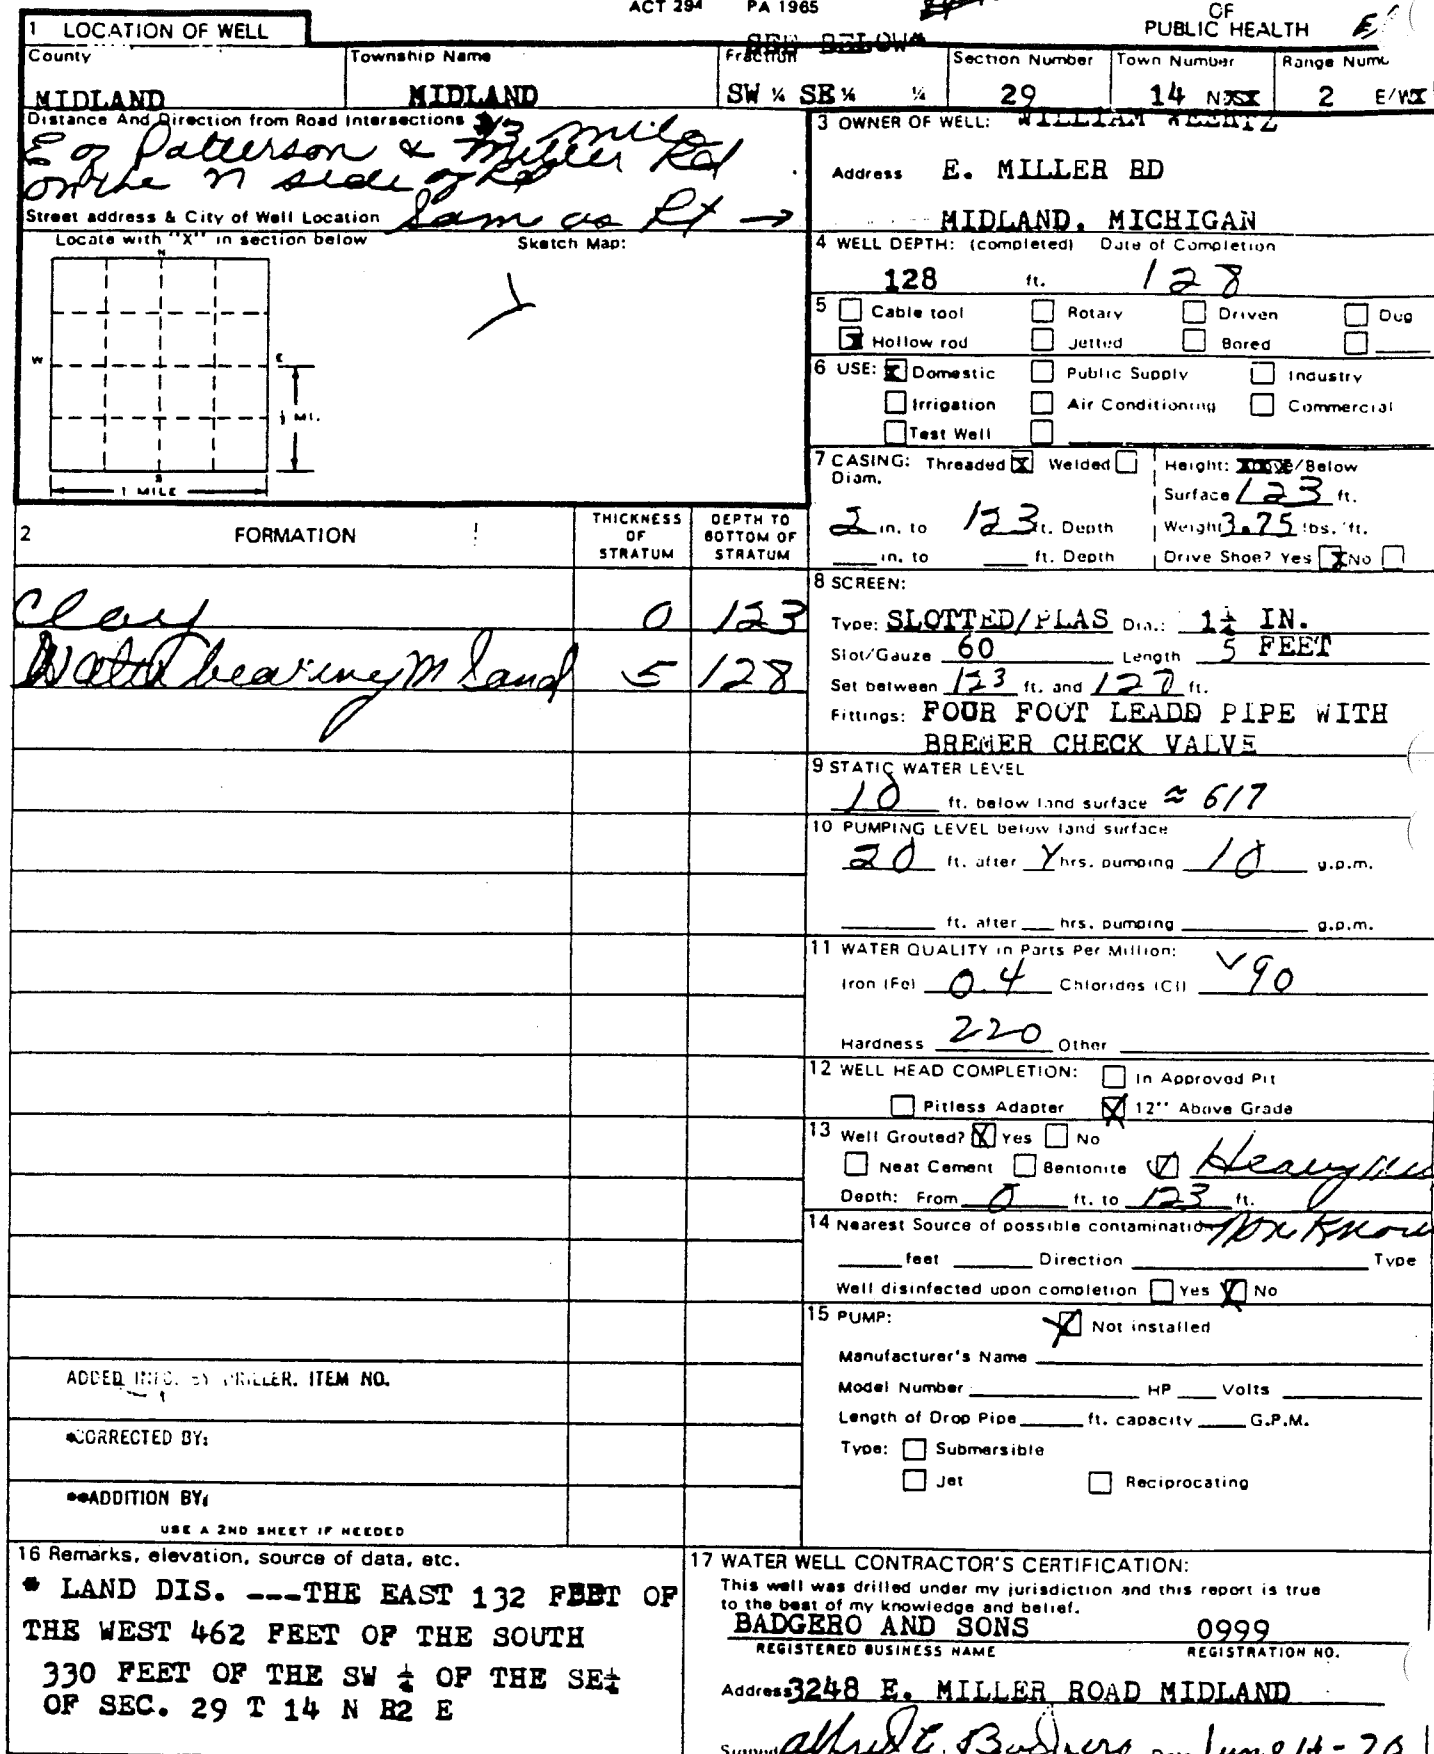 ACT 294 PA 1965
OF
PUBLIC HEALTH
1 LOCATION OF WELL
SEE BELOW*
County
Township Name
Fraction
Section Number
Town Number
Range Num
MIDLAND
MIDLAND
SW ¼ SE ¼ ¼
29
14 N
2 E/W
Distance And Direction from Road Intersections
1/3 mile
E of Patterson & Miller Rd
on the N side of Rd
Street address & City of Well Location Sam as Rt →
Locate with "X" in section below
Sketch Map:
N
W
E
½ MI.
S
1 MILE
3 OWNER OF WELL: WILLIAM WEERTZ
Address E. MILLER RD
MIDLAND, MICHIGAN
4 WELL DEPTH: (completed) Date of Completion
128 ft. 128
5 Cable tool Rotary Driven Dug
X Hollow rod Jetted Bored
6 USE: X Domestic Public Supply Industry
Irrigation Air Conditioning Commercial
Test Well
7 CASING: Threaded X Welded
Diam.
2 in. to 123 ft. Depth
in. to ft. Depth
Height: Above/Below
Surface 123 ft.
Weight 3.75 lbs./ft.
Drive Shoe? Yes X No
2 FORMATION
THICKNESS OF STRATUM
DEPTH TO BOTTOM OF STRATUM
Clay 0 123
Water bearing M Sand 5 128
8 SCREEN:
Type: SLOTTED/PLAS Dia.: 1¼ IN.
Slot/Gauze 60 Length 5 FEET
Set between 123 ft. and 127 ft.
Fittings: FOUR FOOT LEADD PIPE WITH
BREMER CHECK VALVE
9 STATIC WATER LEVEL
10 ft. below land surface ≈ 617
10 PUMPING LEVEL below land surface
20 ft. after hrs. pumping 10 g.p.m.
ft. after hrs. pumping g.p.m.
11 WATER QUALITY in Parts Per Million:
Iron (Fe) 0.4 Chlorides (Cl) 90
Hardness 220 Other
12 WELL HEAD COMPLETION: In Approved Pit
Pitless Adapter X 12" Above Grade
13 Well Grouted? X Yes No
Neat Cement Bentonite Heavy
Depth: From 0 ft. to 123 ft.
14 Nearest Source of possible contamination Non Know
feet Direction Type
Well disinfected upon completion Yes X No
15 PUMP: X Not installed
Manufacturer's Name
Model Number HP Volts
Length of Drop Pipe ft. capacity G.P.M.
Type: Submersible
Jet Reciprocating
ADDED INFO. BY DRILLER, ITEM NO.
*CORRECTED BY:
**ADDITION BY:
USE A 2ND SHEET IF NEEDED
16 Remarks, elevation, source of data, etc.
* LAND DIS. ---THE EAST 132 FEET OF
THE WEST 462 FEET OF THE SOUTH
330 FEET OF THE SW ¼ OF THE SE¼
OF SEC. 29 T 14 N R2 E
17 WATER WELL CONTRACTOR'S CERTIFICATION:
This well was drilled under my jurisdiction and this report is true
to the best of my knowledge and belief.
BADGERO AND SONS 0999
REGISTERED BUSINESS NAME REGISTRATION NO.
Address 3248 E. MILLER ROAD MIDLAND
Signed Alfred E. Badgero Date June 14-